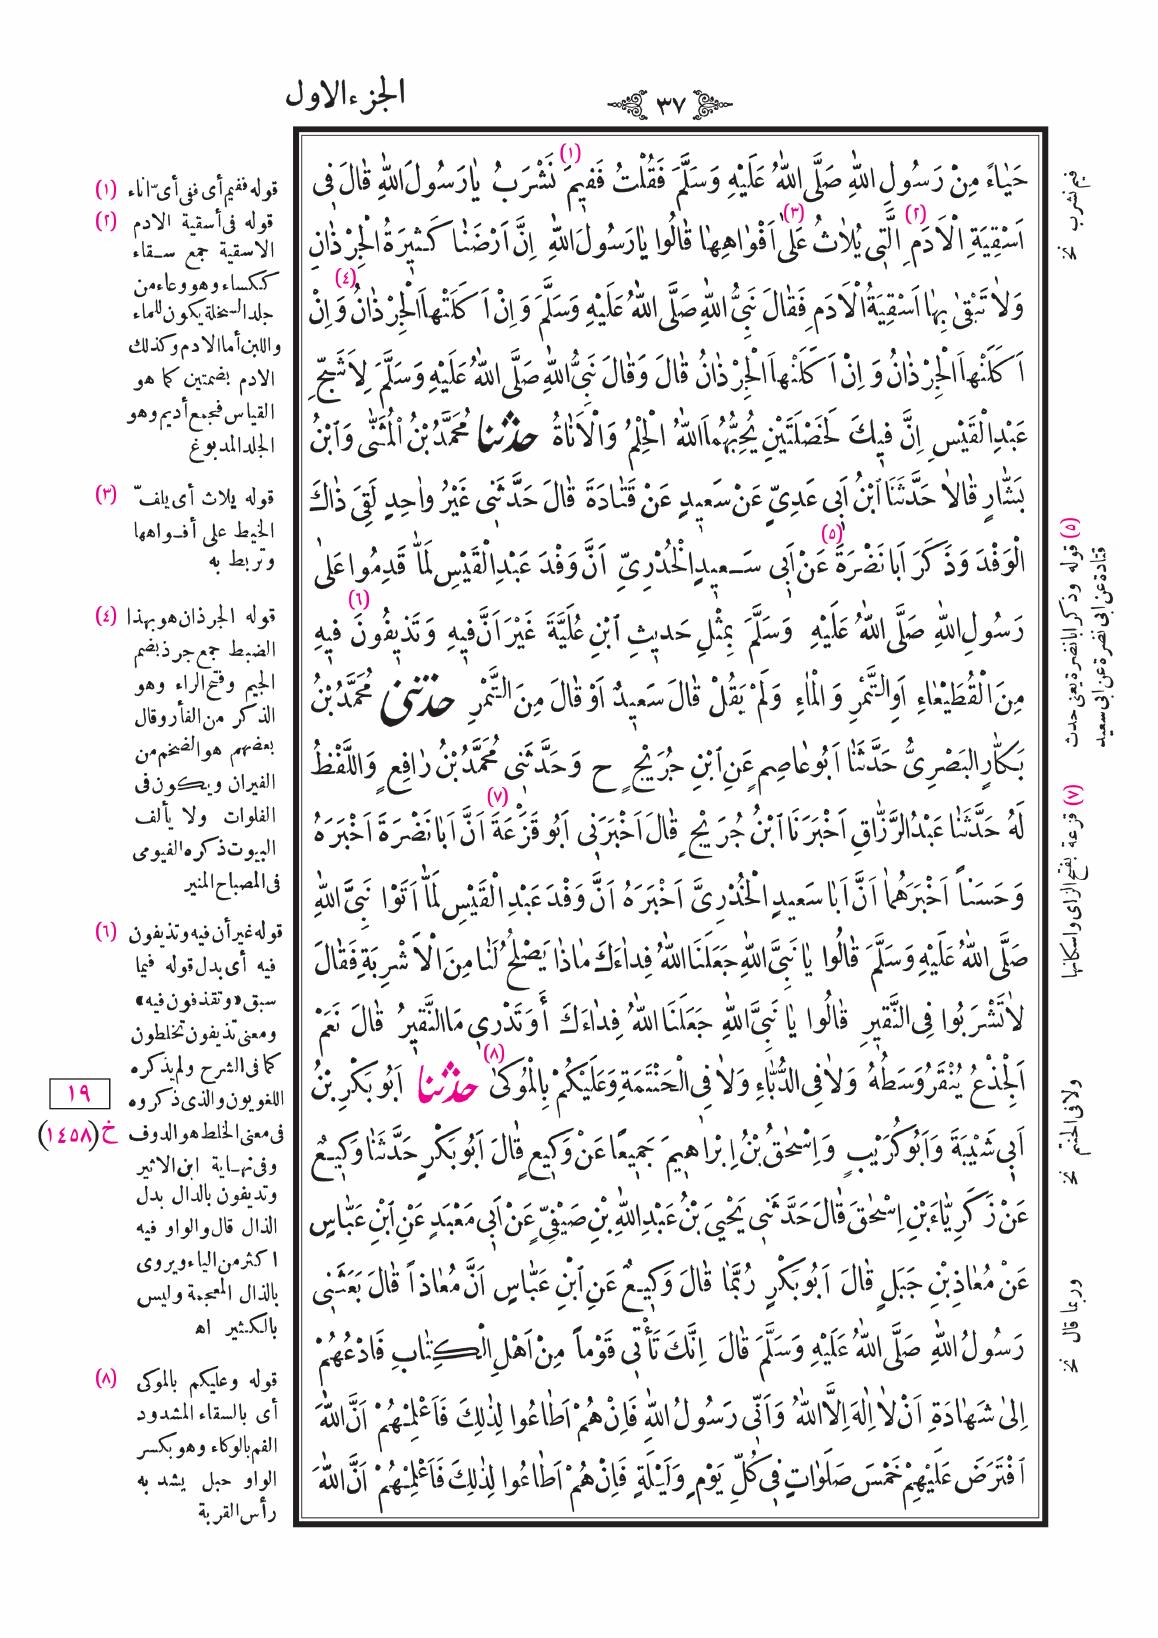 الجزء الاول
٣٧
حَيٰاءً مِنْ رَسُولِ اللّٰهِ صَلَّى اللّٰهُ عَلَيْهِ وَسَلَّمَ فَقُلْتُ فَفِيمَ (١) نَشْرَبُ يٰا رَسُولَ اللّٰهِ قٰالَ فِى
اَسْقِيَةِ الْاَدَمِ (٢) الَّتِى يُلاٰثُ (٣) عَلىٰ اَفْوٰاهِهٰا قٰالُوا يٰا رَسُولَ اللّٰهِ اِنَّ اَرْضَنٰا كَثِيرَةُ الْجِرْذٰانِ (٤)
وَلاٰ تَبْقىٰ بِهٰا اَسْقِيَةُ الْاَدَمِ فَقٰالَ نَبِىُّ اللّٰهِ صَلَّى اللّٰهُ عَلَيْهِ وَسَلَّمَ وَ اِنْ اَكَلَتْهَا الْجِرْذٰانُ وَ اِنْ
اَكَلَتْهَا الْجِرْذٰانُ وَ اِنْ اَكَلَتْهَا الْجِرْذٰانُ قٰالَ وَقٰالَ نَبِىُّ اللّٰهِ صَلَّى اللّٰهُ عَلَيْهِ وَسَلَّمَ لِاَشَجِّ
عَبْدِ الْقَيْسِ اِنَّ فِيكَ لَخَصْلَتَيْنِ يُحِبُّهُمَا اللّٰهُ الْحِلْمُ وَالْاَنٰاةُ حدثنا مُحَمَّدُ بْنُ الْمُثَنّٰى وَابْنُ
بَشّٰارٍ قٰالاٰ حَدَّثَنَا ابْنُ اَبِى عَدِىٍّ عَنْ سَعِيدٍ عَنْ قَتٰادَةَ قٰالَ حَدَّثَنِى غَيْرُ وٰاحِدٍ لَقِىَ ذٰاكَ
الْوَفْدَ وَذَكَرَ اَبٰا نَضْرَةَ (٥) عَنْ اَبِى سَعِيدٍ الْخُدْرِىِّ اَنَّ وَفْدَ عَبْدِ الْقَيْسِ لَمّٰا قَدِمُوا عَلىٰ
رَسُولِ اللّٰهِ صَلَّى اللّٰهُ عَلَيْهِ وَسَلَّمَ بِمِثْلِ حَدِيثِ ابْنِ عُلَيَّةَ غَيْرَ اَنَّ فِيهِ وَتَذِيفُونَ (٦) فِيهِ
مِنَ الْقُطَيْعٰاءِ اَوِ التَّمْرِ وَالْمٰاءِ وَلَمْ يَقُلْ قٰالَ سَعِيدٌ اَوْ قٰالَ مِنَ التَّمْرِ حدثنى مُحَمَّدُ بْنُ
بَكّٰارٍ الْبَصْرِىُّ حَدَّثَنٰا اَبُو عٰاصِمٍ عَنِ ابْنِ جُرَيْجٍ ح وَحَدَّثَنِى مُحَمَّدُ بْنُ رٰافِعٍ وَاللَّفْظُ
لَهُ حَدَّثَنٰا عَبْدُ الرَّزّٰاقِ اَخْبَرَنَا ابْنُ جُرَيْجٍ قٰالَ اَخْبَرَنِى اَبُو قَزْعَةَ (٧) اَنَّ اَبٰا نَضْرَةَ اَخْبَرَهُ
وَحَسَناً اَخْبَرَهُمٰا اَنَّ اَبٰا سَعِيدٍ الْخُدْرِىَّ اَخْبَرَهُ اَنَّ وَفْدَ عَبْدِ الْقَيْسِ لَمّٰا اَتَوْا نَبِىَّ اللّٰهِ
صَلَّى اللّٰهُ عَلَيْهِ وَسَلَّمَ قٰالُوا يٰا نَبِىَّ اللّٰهِ جَعَلَنَا اللّٰهُ فِدٰاءَكَ مٰاذٰا يَصْلُحُ لَنٰا مِنَ الْاَشْرِبَةِ فَقٰالَ
لاٰ تَشْرَبُوا فِى النَّقِيرِ قٰالُوا يٰا نَبِىَّ اللّٰهِ جَعَلَنَا اللّٰهُ فِدٰاءَكَ أَوَتَدْرِى مَا النَّقِيرُ قٰالَ نَعَمْ
اَلْجِذْعُ يُنْقَرُ وَسَطُهُ وَلاٰ فِى الدُّبّٰاءِ وَلاٰ فِى الْحَنْتَمَةِ وَعَلَيْكُمْ بِالْمُوكىٰ (٨) حدثنا اَبُو بَكْرِ بْنُ
اَبِى شَيْبَةَ وَاَبُو كُرَيْبٍ وَاِسْحٰقُ بْنُ اِبْرٰاهِيمَ جَمِيعًا عَنْ وَكِيعٍ قٰالَ اَبُو بَكْرٍ حَدَّثَنٰا وَكِيعٌ
عَنْ زَكَرِيّٰاءَ بْنِ اِسْحٰقَ قٰالَ حَدَّثَنِى يَحْيَى بْنُ عَبْدِ اللّٰهِ بْنِ صَيْفِىٍّ عَنْ اَبِى مَعْبَدٍ عَنِ ابْنِ عَبّٰاسٍ
عَنْ مُعٰاذِ بْنِ جَبَلٍ قٰالَ اَبُو بَكْرٍ رُبَّمٰا قٰالَ وَكِيعٌ عَنِ ابْنِ عَبّٰاسٍ اَنَّ مُعٰاذاً قٰالَ بَعَثَنِى
رَسُولُ اللّٰهِ صَلَّى اللّٰهُ عَلَيْهِ وَسَلَّمَ قٰالَ اِنَّكَ تَأْتِى قَوْماً مِنْ اَهْلِ الْكِتٰابِ فَادْعُهُمْ
اِلىٰ شَهٰادَةِ اَنْ لاٰ اِلٰهَ اِلَّا اللّٰهُ وَاَنِّى رَسُولُ اللّٰهِ فَاِنْ هُمْ اَطٰاعُوا لِذٰلِكَ فَاَعْلِمْهُمْ اَنَّ اللّٰهَ
افْتَرَضَ عَلَيْهِمْ خَمْسَ صَلَوٰاتٍ فِى كُلِّ يَوْمٍ وَلَيْلَةٍ فَاِنْ هُمْ اَطٰاعُوا لِذٰلِكَ فَاَعْلِمْهُمْ اَنَّ اللّٰهَ
(١) قوله ففيم أى ففى أىّ اناء
(٢) قوله فى أسقية الادم
الاسقية جمع سقاء
ككساء وهو وعاء من
جلد السخلة يكون للماء
واللبن أما الادم وكذلك
الادم بضمتين كما هو
القياس فجمع أديم وهو
الجلد المدبوغ
(٣) قوله يلاث أى يلفّ
الخيط على أفواهها
وتربط به
(٤) قوله الجرذان هو بهذا
الضبط جمع جرذ بضم
الجيم وفتح الراء وهو
الذكر من الفأر وقال
بعضهم هو الضخم من
الفيران ويكون فى
الفلوات ولا يألف
البيوت ذكره الفيومى
فى المصباح المنير
(٦) قوله غير أن فيه وتذيفون
فيه أى بدل قوله فيما
سبق «وتقذفون فيه»
ومعنى تذيفون تخلطون
كما فى الشرح ولم يذكره
اللغويون والذى ذكروه
فى معنى الخلط هو الدوف
وفى نهاية ابن الاثير
وتديفون بالدال بدل
الذال قال والواو فيه
اكثر من الياء ويروى
بالذال المعجمة وليس
بالكثير اه
(٨) قوله وعليكم بالموكى
أى بالسقاء المشدود
الفم بالوكاء وهو بكسر
الواو حبل يشد به
رأس القربة
١٩
خ (١٤٥٨)
فيم نشرب نخ
(٥) قوله وذكر ابا نضرة يعنى حدث
قتادة عن ابى نضرة عن ابى سعيد
(٧) قزعة بفتح الزاى واسكانها
ولا فى الحنتم نخ
وربما قال نخ